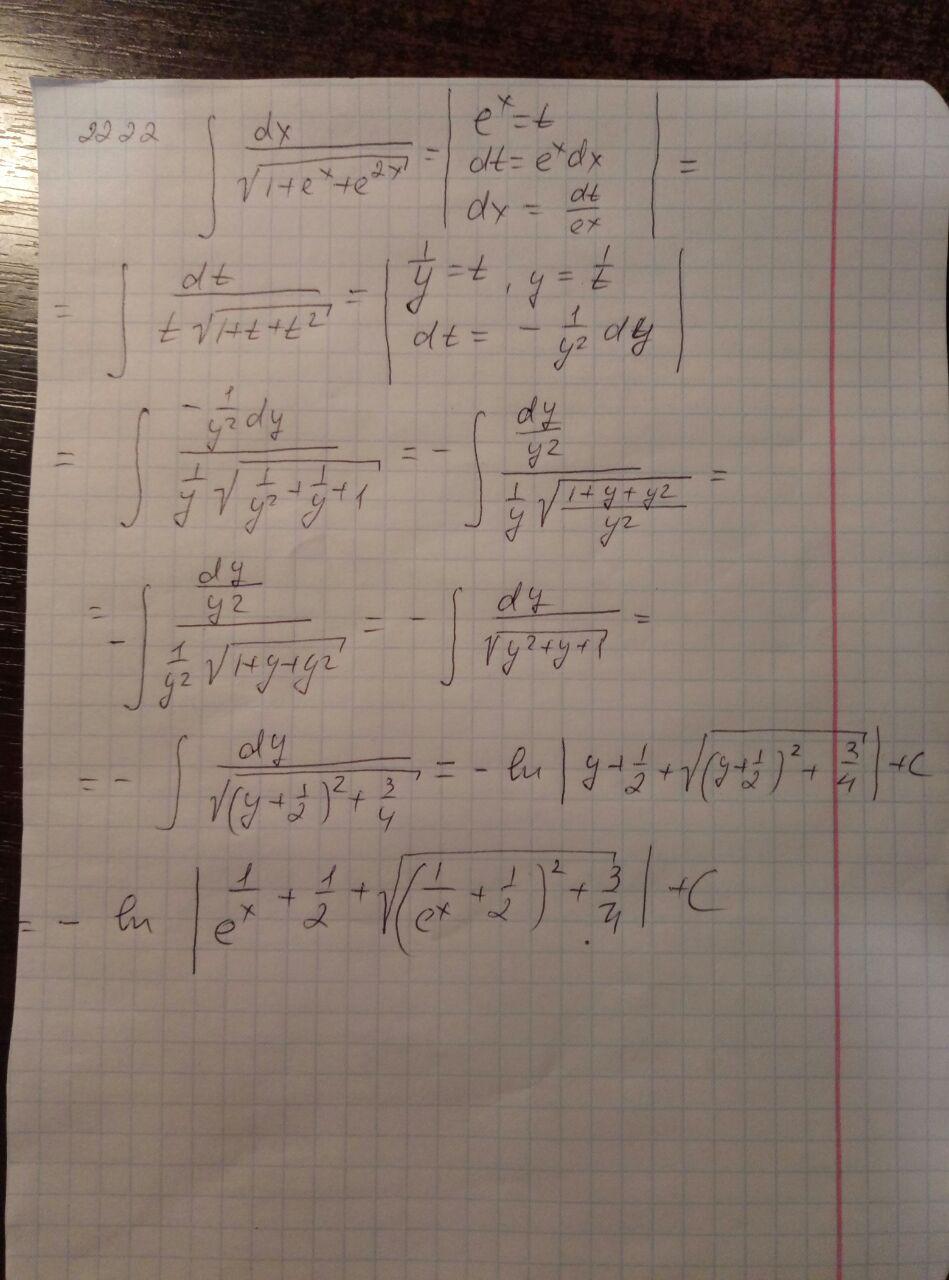 2222 ∫ dx/√(1+e^x+e^(2x)) = | e^x = t
dt = e^x dx
dx = dt/e^x | =
= ∫ dt/(t√(1+t+t²)) = | 1/y = t, y = 1/t
dt = - 1/y² dy |
= ∫ (-1/y² dy)/(1/y √(1/y²+1/y+1)) = - ∫ (dy/y²)/(1/y √((1+y+y²)/y²)) =
= - ∫ (dy/y²)/(1/y² √(1+y+y²)) = - ∫ dy/√(y²+y+1) =
= - ∫ dy/√((y+1/2)²+3/4) = - ln | y+1/2+√((y+1/2)²+3/4) | +C
= - ln | 1/e^x + 1/2 + √((1/e^x + 1/2)² + 3/4) | +C